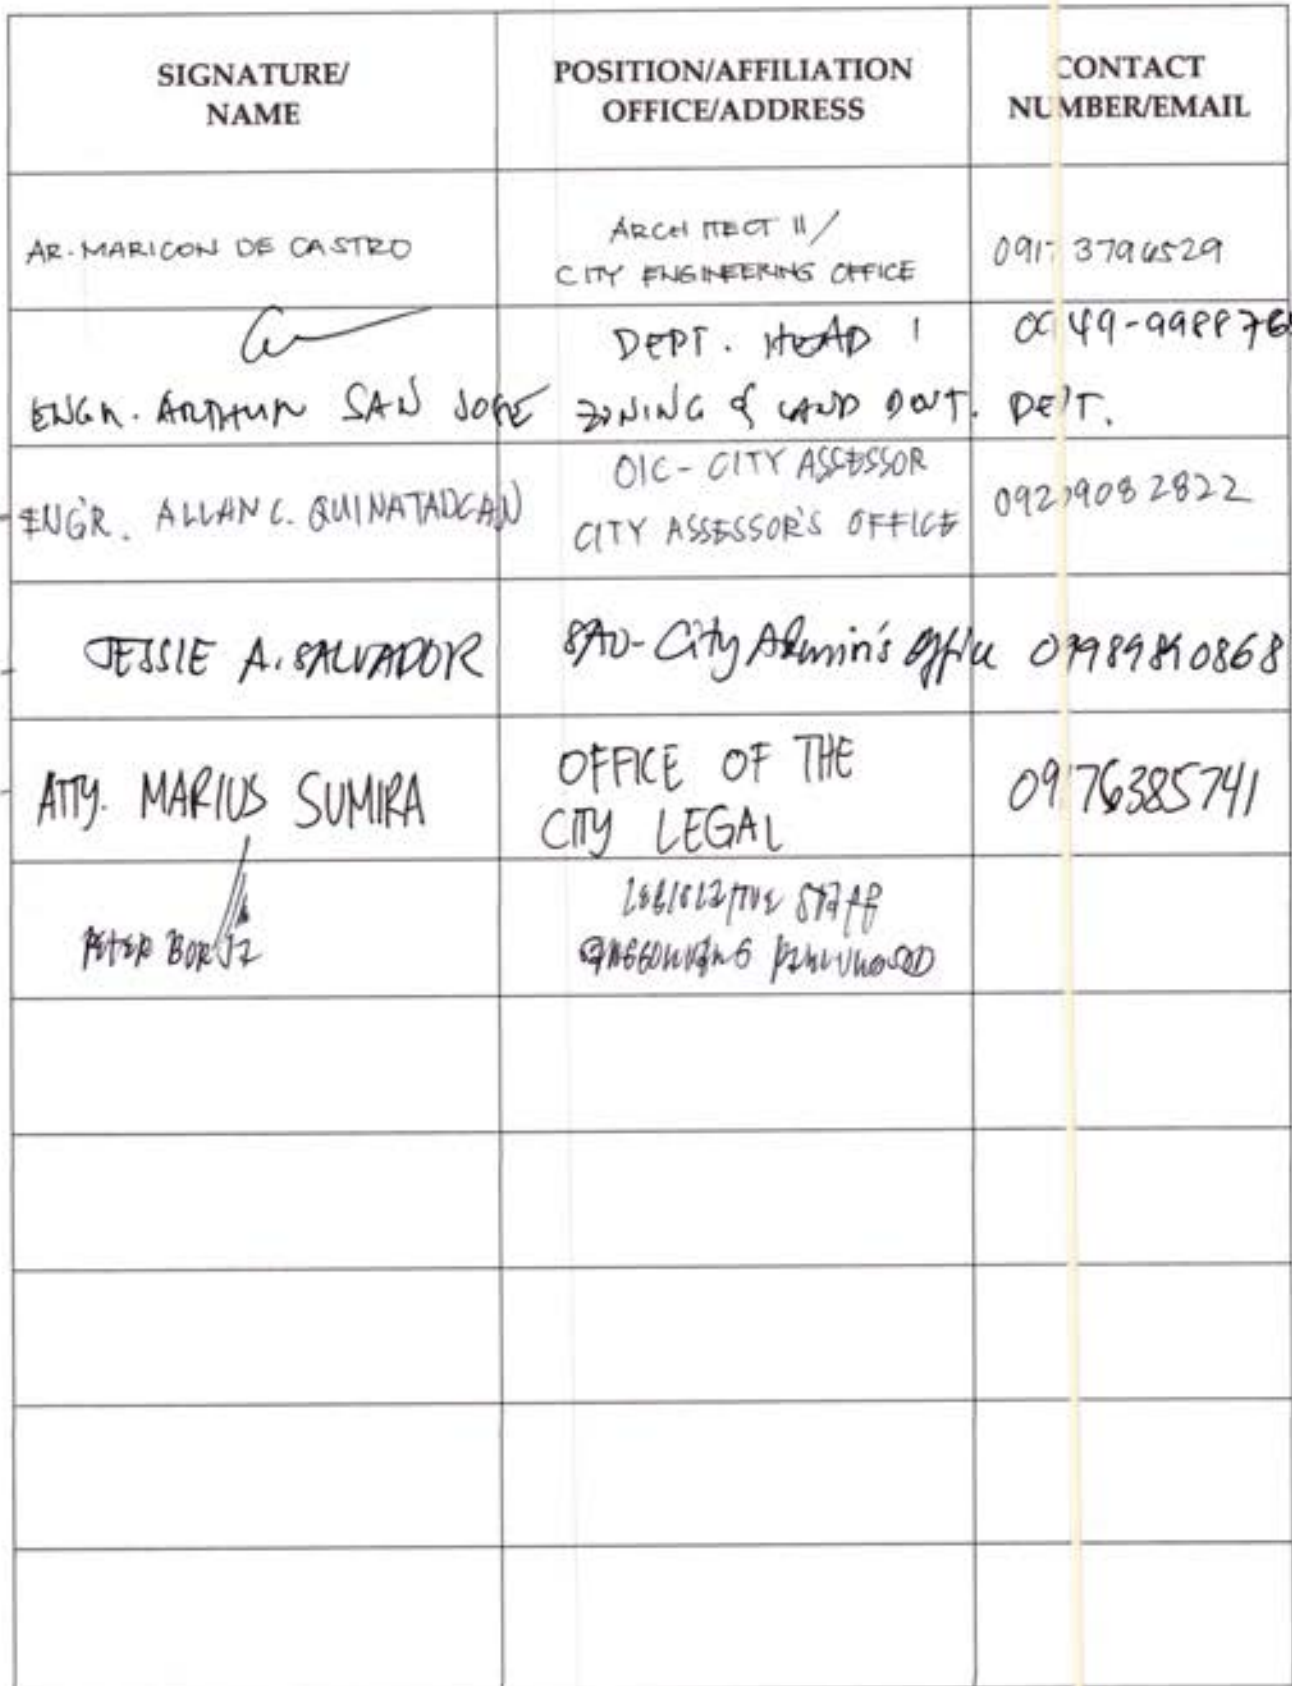 SIGNATURE/
NAME
POSITION/AFFILIATION
OFFICE/ADDRESS
CONTACT
NUMBER/EMAIL
AR. MARICON DE CASTRO
ARCHITECT II/
CITY ENGINEERING OFFICE
DEPT. HEAD I
ENGR. ARTHUR SAN JOSE
ZONING & LAND DEVT. DEPT.
ENGR. ALLAN C. QUINATADCAN
OIC - CITY ASSESSOR
CITY ASSESSOR'S OFFICE
JESSIE A. SALVADOR
SAO - City Admin's Office
ATTY. MARIUS SUMIRA
OFFICE OF THE
CITY LEGAL
PETER BORJA
LEGISLATIVE STAFF
SANGGUNIANG PANLUNGSOD